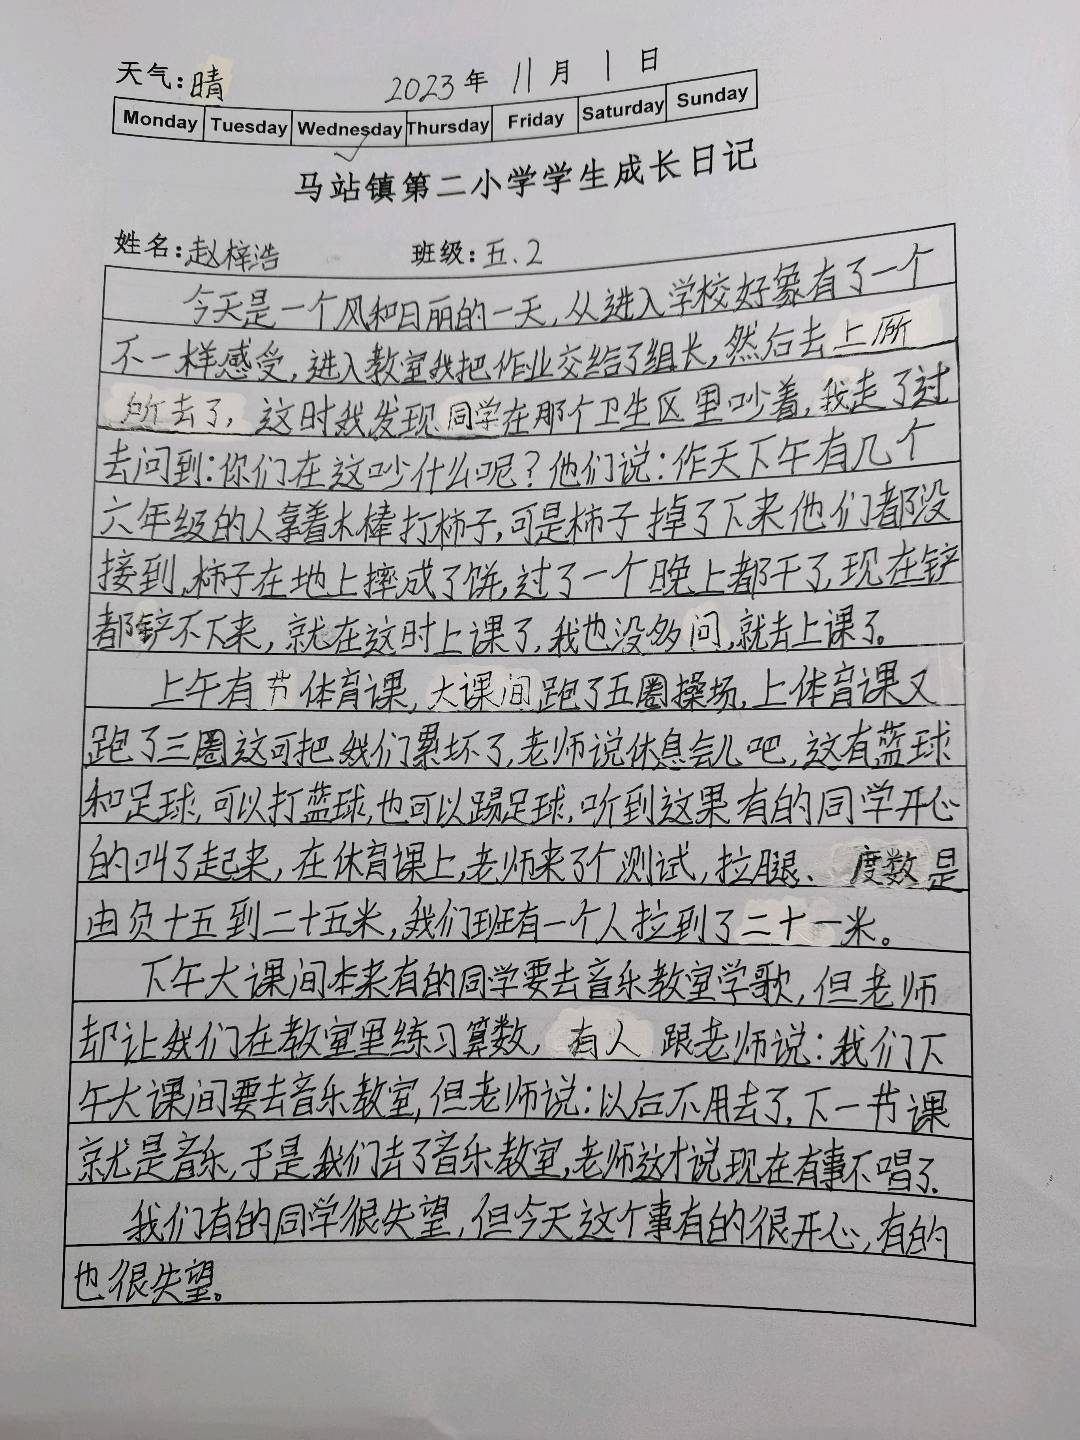 天气:晴 2023年 11月 1日
Monday Tuesday Wednesday Thursday Friday Saturday Sunday
马站镇第二小学学生成长日记
姓名:赵梓浩 班级:五.2
今天是一个风和日丽的一天,从进入学校好象有了一个
不一样感受,进入教室我把作业交给了组长,然后去上厕
所去了,这时我发现同学在那个卫生区里吵着,我走了过
去问到:你们在这吵什么呢?他们说:作天下午有几个
六年级的人拿着木棒打柿子,可是柿子掉了下来他们都没
接到,柿子在地上摔成了饼,过了一个晚上都干了,现在铲
都铲不下来,就在这时上课了,我也没多问,就去上课了。
上午有节体育课,大课间跑了五圈操场,上体育课又
跑了三圈这可把我们累坏了,老师说休息会儿吧,这有蓝球
和足球,可以打蓝球,也可以踢足球,听到这果有的同学开心
的叫了起来,在体育课上,老师来了个测试,拉腿、度数是
由负十五到二十五米,我们班有一个人拉到了二十一米。
下午大课间本来有的同学要去音乐教室学歌,但老师
却让我们在教室里练习算数,有人跟老师说:我们下
午大课间要去音乐教室,但老师说:以后不用去了,下一节课
就是音乐,于是我们去了音乐教室,老师这才说现在有事不唱了.
我们有的同学很失望,但今天这个事有的很开心,有的
也很失望。